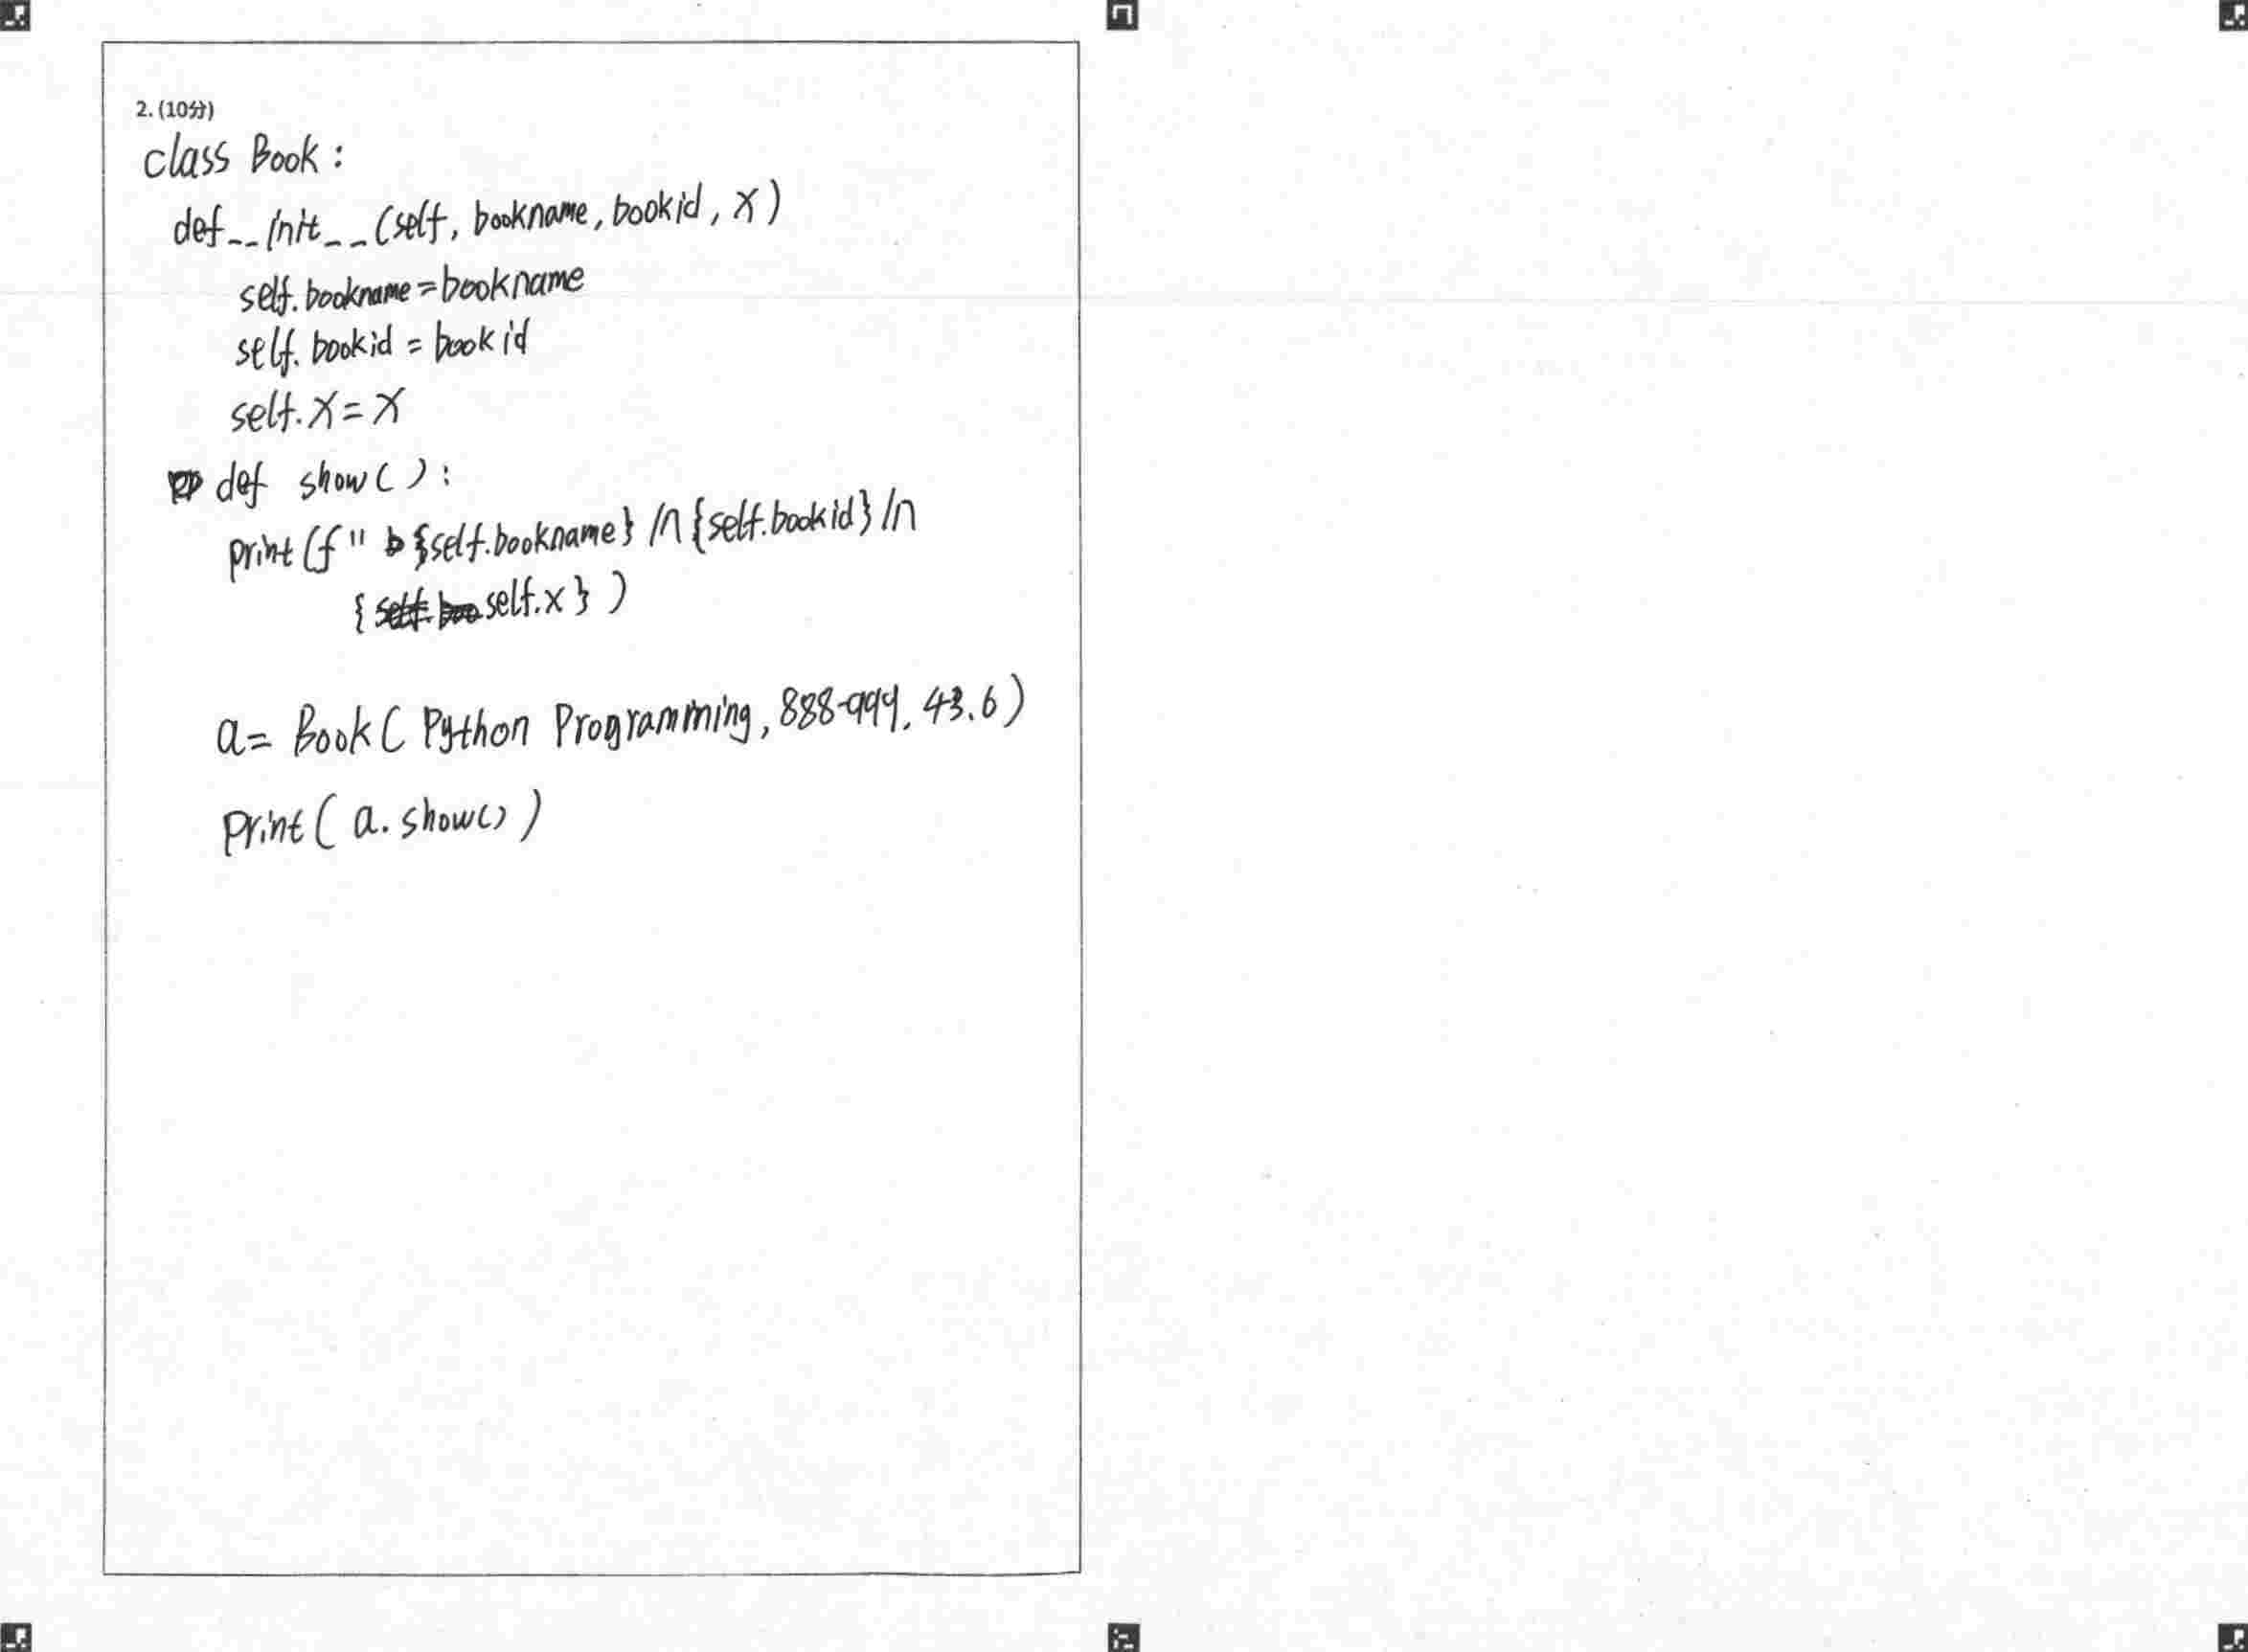 2. (10分)
class Book:
def__init__(self, bookname, bookid, x)
self.bookname=bookname
self.bookid = bookid
self.x=x
def show():
print(f" {self.bookname} /n {self.bookid} /n
{ self.x } )
a= Book( Python Programming, 888-999, 43.6 )
print( a.show() )